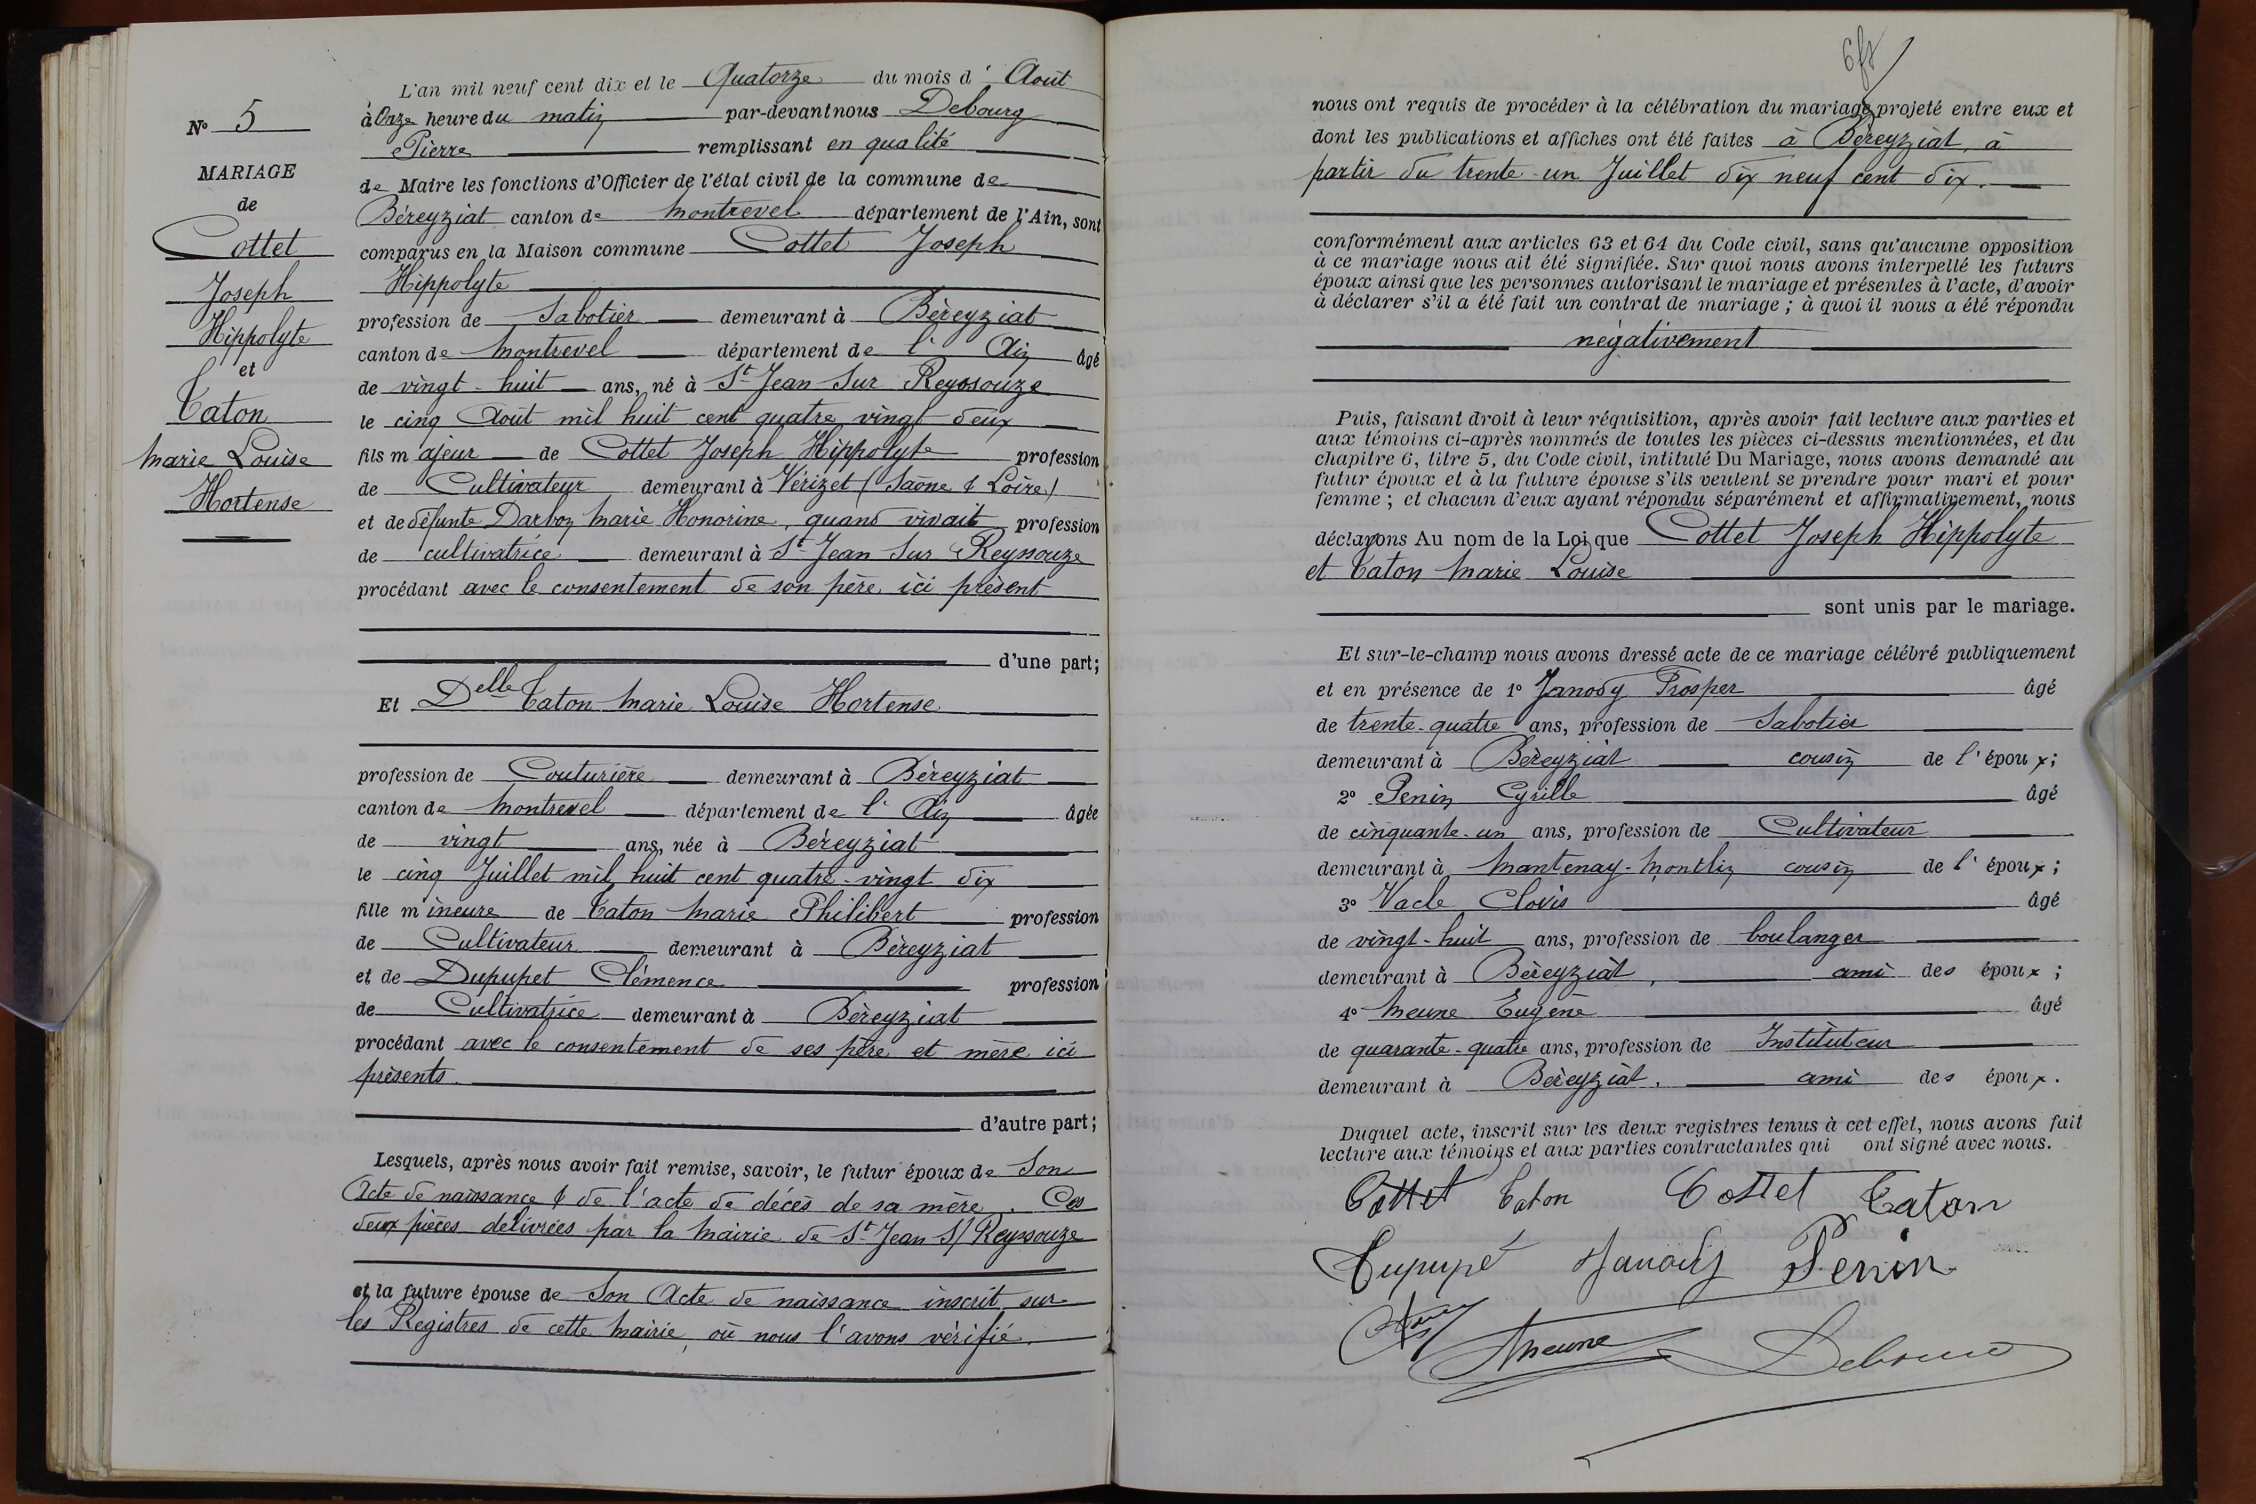 N° 5
MARIAGE
de
Cottet
Joseph
Hippolyte
et
Caton
Marie Louise
Hortense
L'an mil neuf cent dix et le Quatorze du mois d' Août
à Onze heure du matin par-devant nous Debourg
Pierre remplissant en qualité
de Maire les fonctions d'Officier de l'état civil de la commune de
Béreyziat canton de Montrevel département de l'Ain, sont
comparus en la Maison commune Cottet Joseph
Hippolyte
profession de Sabotier demeurant à Béreyziat
canton de Montrevel département de l' Ain âgé
de vingt-huit ans, né à St Jean Sur Reyssouze
le cinq Août mil huit cent quatre vingt deux
fils majeur de Cottet Joseph Hippolyte profession
de Cultivateur demeurant à Vérizet (Saône & Loire)
et de défunte Darbon Marie Honorine, quand vivait profession
de cultivatrice demeurant à St Jean Sur Reyssouze
procédant avec le consentement de son père, ici présent
d'une part;
Et Delle Caton Marie Louise Hortense
profession de Couturière demeurant à Béreyziat
canton de Montrevel département de l' Ain âgée
de vingt ans, née à Béreyziat
le cinq Juillet mil huit cent quatre-vingt dix
fille mineure de Caton Marie Philibert profession
de Cultivateur demeurant à Béreyziat
et de Dupupet Clémence profession
de Cultivatrice demeurant à Béreyziat
procédant avec le consentement de ses père et mère ici
présents.
d'autre part;
Lesquels, après nous avoir fait remise, savoir, le futur époux de Son
Acte de naissance & de l'acte de décès de sa mère. Ces
deux pièces délivrées par la Mairie de St Jean S/ Reyssouze
et la future épouse de Son Acte de naissance inscrit sur
les Registres de cette Mairie, où nous l'avons vérifié.
nous ont requis de procéder à la célébration du mariage projeté entre eux et
dont les publications et affiches ont été faites à Béreyziat, à
partir du trente-un Juillet dix neuf cent dix.
conformément aux articles 63 et 64 du Code civil, sans qu'aucune opposition
à ce mariage nous ait été signifiée. Sur quoi nous avons interpellé les futurs
époux ainsi que les personnes autorisant le mariage et présentes à l'acte, d'avoir
à déclarer s'il a été fait un contrat de mariage; à quoi il nous a été répondu
négativement
Puis, faisant droit à leur réquisition, après avoir fait lecture aux parties et
aux témoins ci-après nommés de toutes les pièces ci-dessus mentionnées, et du
chapitre 6, titre 5, du Code civil, intitulé Du Mariage, nous avons demandé au
futur époux et à la future épouse s'ils veulent se prendre pour mari et pour
femme; et chacun d'eux ayant répondu séparément et affirmativement, nous
déclarons Au nom de la Loi que Cottet Joseph Hippolyte
et Caton Marie Louise
sont unis par le mariage.
Et sur-le-champ nous avons dressé acte de ce mariage célébré publiquement
et en présence de 1° Janody Prosper âgé
de trente-quatre ans, profession de Sabotier
demeurant à Béreyziat cousin de l'époux;
2° Penin Cyrille âgé
de cinquante-un ans, profession de Cultivateur
demeurant à Mantenay-Montlin cousin de l'époux;
3° Vacle Clovis âgé
de vingt-huit ans, profession de boulanger
demeurant à Béreyziat, ami des époux;
4° Meune Eugène âgé
de quarante-quatre ans, profession de Instituteur
demeurant à Béreyziat, ami des époux.
Duquel acte, inscrit sur les deux registres tenus à cet effet, nous avons fait
lecture aux témoins et aux parties contractantes qui ont signé avec nous.
Cottet Caton Cottet Caton
Dupupé Janody Penin
Meune Debourg